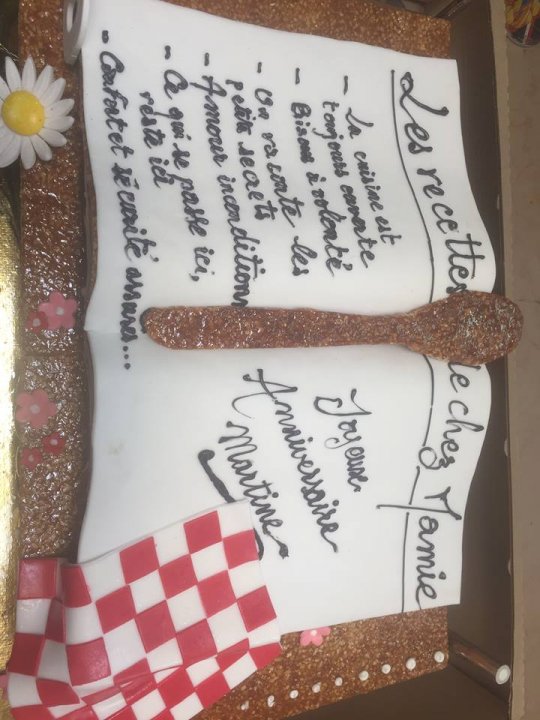 Les recettes de chez Mamie
- La cuisine est
toujours ouverte
- Bisous à volonté
- On raconte les
petits secrets
- Amour inconditionn
- Ce qui se passe ici,
reste ici
- Confort et sécurité assurés...
Joyeux
Anniversaire
Martine